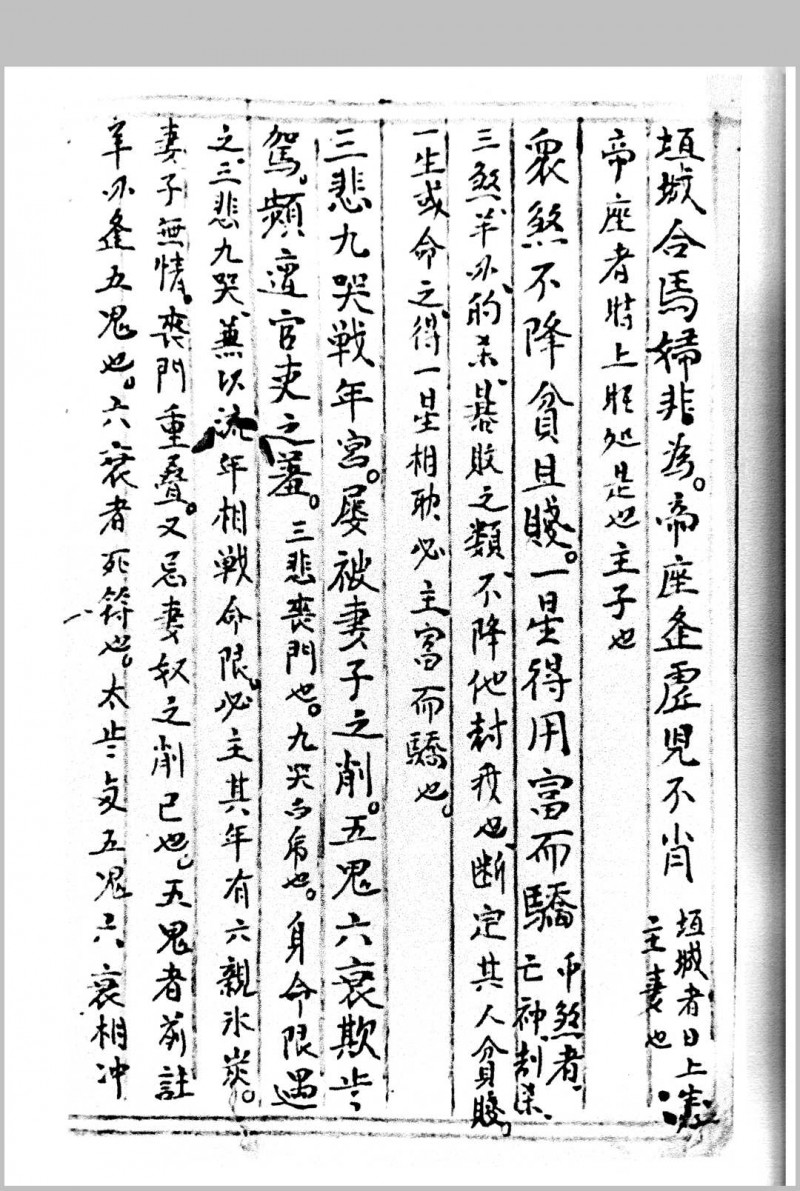 垣城合馬婦非為。帝座逢虛児不肖 垣城者日上是
主妻也
帝座者時上胚処是也主子也
衆煞不降貧且賤。一星得用富而驕 衆煞者、
亡神、刼杀、
三煞、羊刃、的杀、暴敗之類、不降他封我也、断定其人貧賤。
一生或命之、得一星相助必主富而驕也。
三悲九哭戦年宮。屡被妻子之削。五鬼六衰欺歩
駕。頻遭官吏之羞。三悲喪門也。九哭白虎也。身命限遇
之、三悲九哭、兼以流年相戦命限。必主其年有六親氷炭。
妻子無情。喪門重疊。又忌妻奴之削已也。五鬼者前註
羊刃逢五鬼也。六衰者死符也。太歩与五鬼六衰相冲